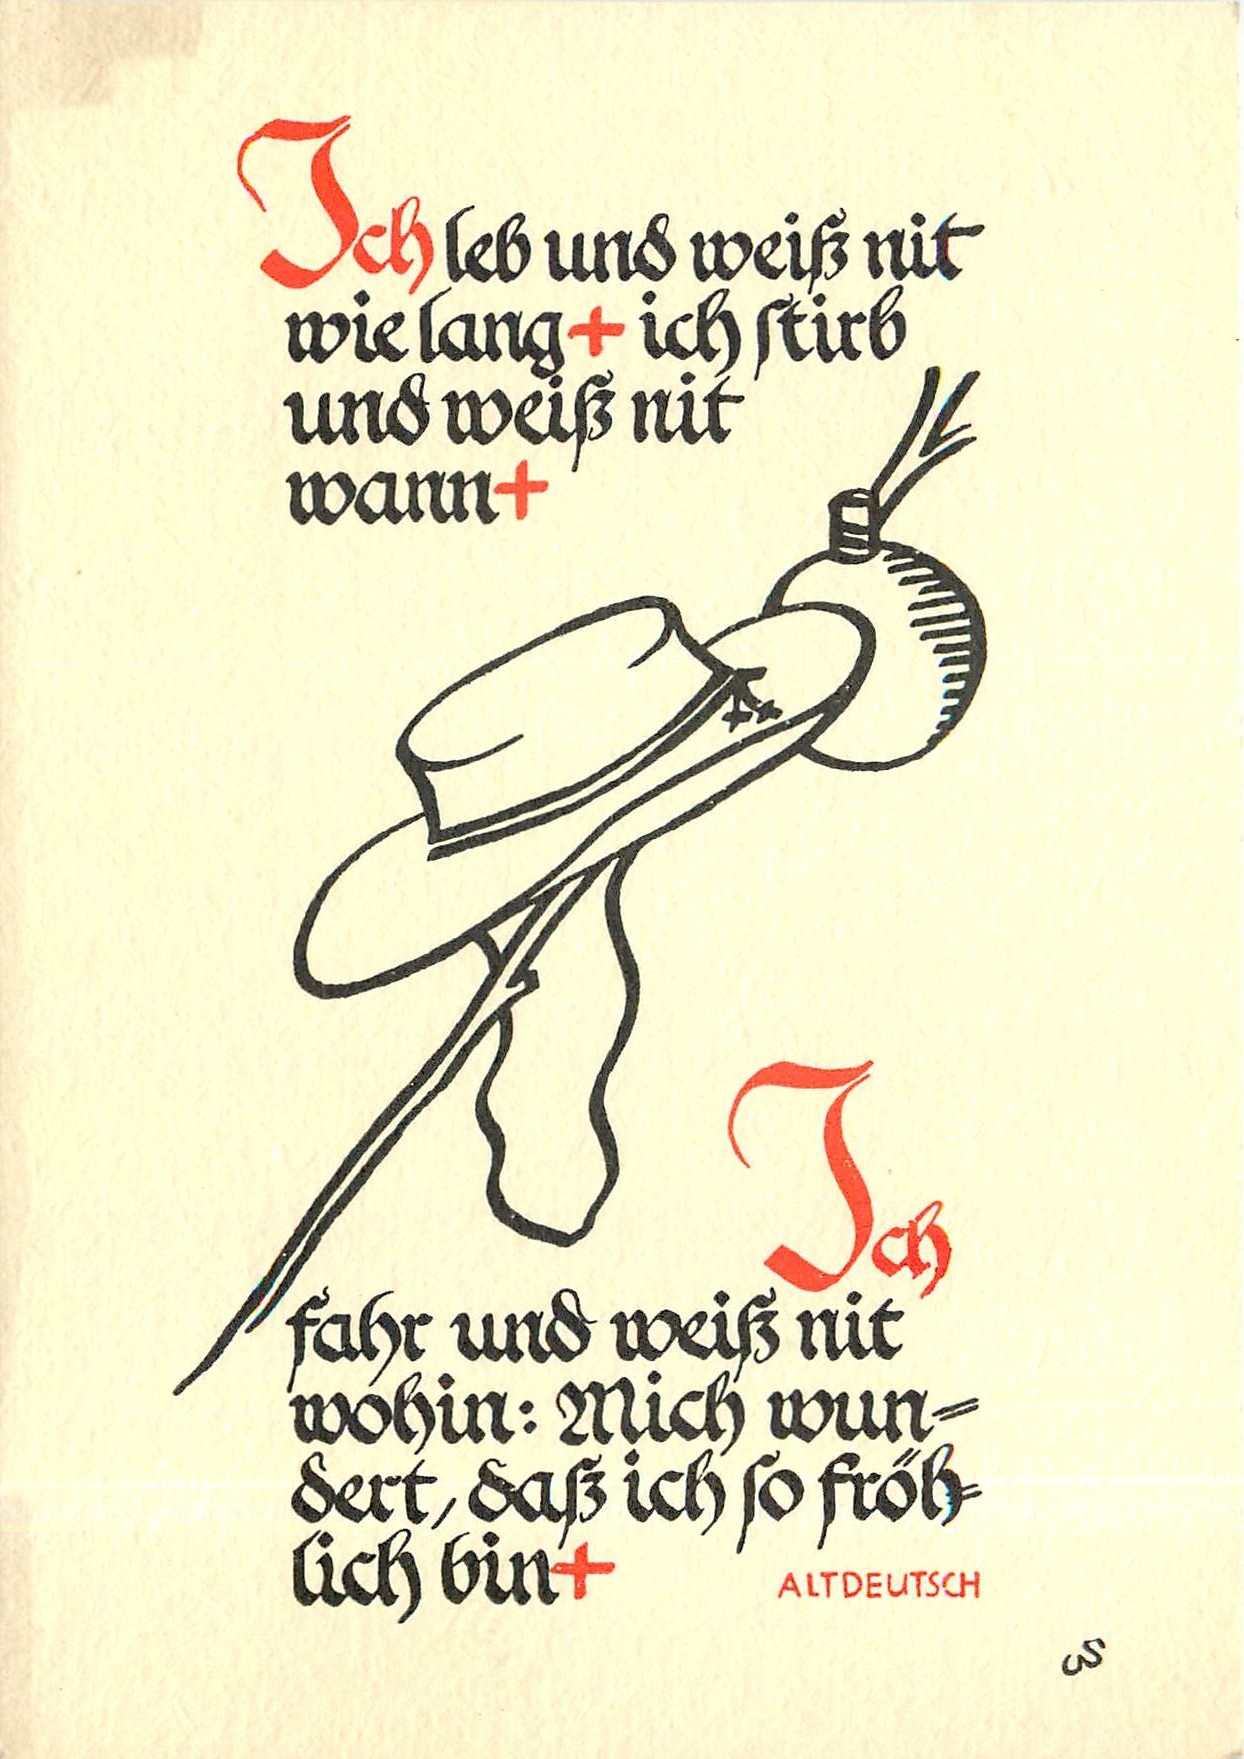 Ich leb und weiß nit
wie lang + ich stirb
und weiß nit
wann +
Ich
fahr und weiß nit
wohin: Mich wun=
dert, daß ich so fröh=
lich bin +
ALTDEUTSCH